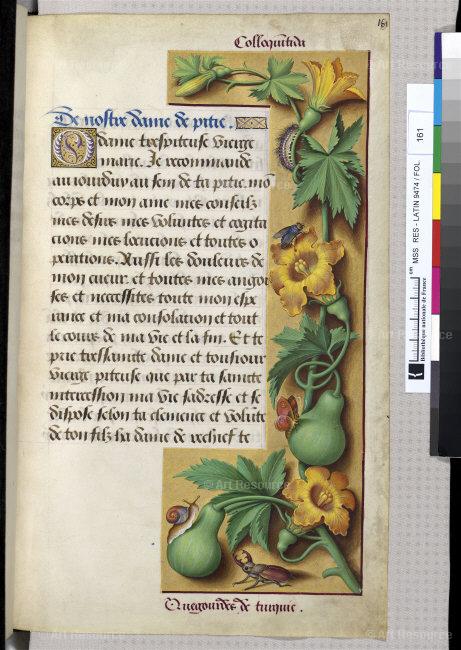 161
Colloquintida
De nostre dame de pitie.
O dame trespiteuse vierge
marie. Je recommande
auiourduy au sein de ta pitie. mõ
corps et mon ame mes conseilz
mes desirs mes voluntes et cogita
cions mes locucions et toutes o
peracions. Aussi les douleurs de
mon cueur. et toutes mes angois
ses et necessites toute mon espe
rance et ma consolation et tout
le cours de ma vie et la fin. Et te
prie tressaincte dame et tousiours
vierge piteuse que par ta saincte
intercession ma vie sadresse et se
dispose selon ta clemence et volũte
de ton filz ha dame de rechief te
Quegourdes de turquie.
MSS RES - LATIN 9474 / FOL
161
cm
Bibliothèque nationale de France
© Art Resource
© Art Resource
© Art Resource
© Art Resource